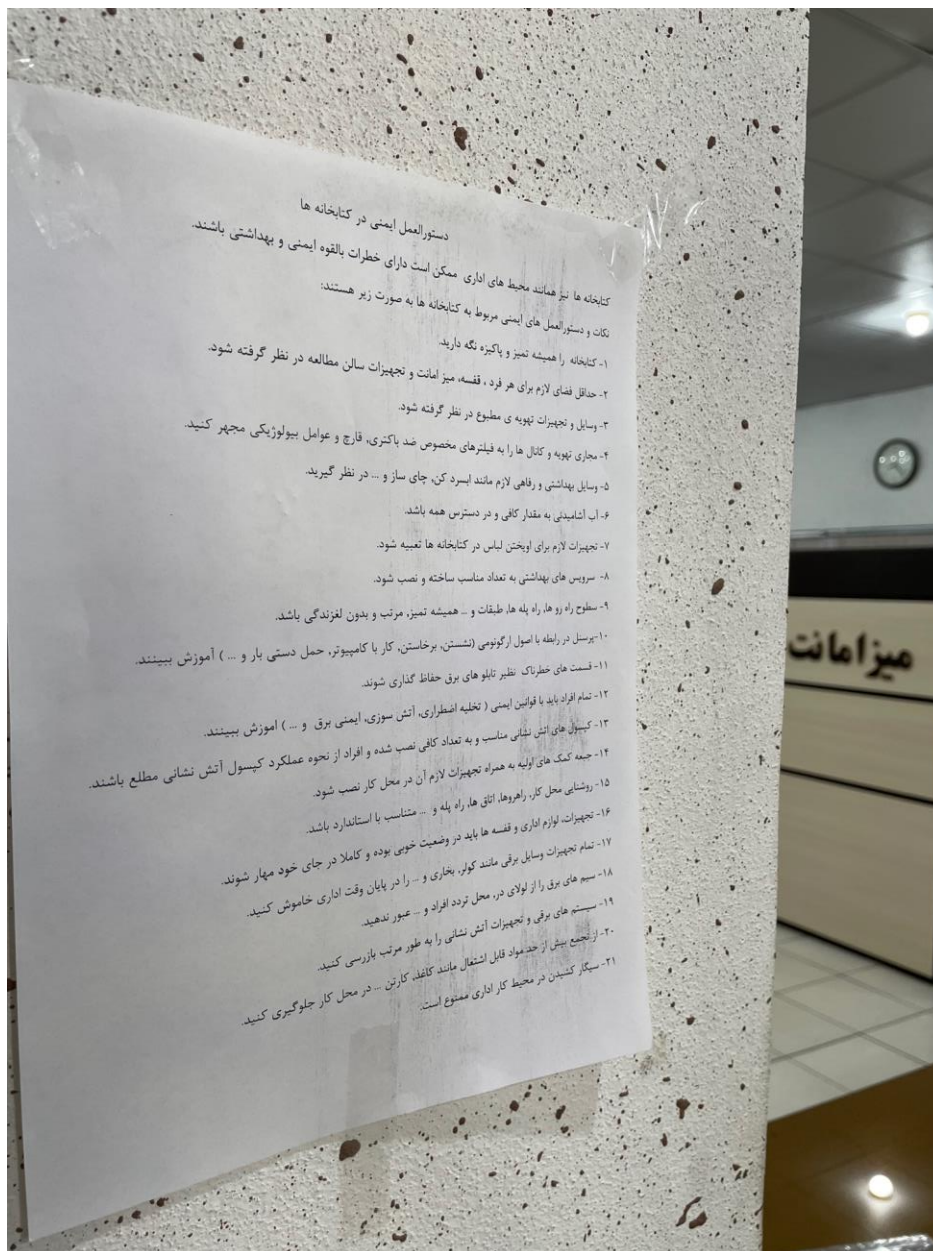 دستورالعمل ایمنی در کتابخانه ها
کتابخانه ها نیز همانند محیط های اداری ممکن است دارای خطرات بالقوه ایمنی و بهداشتی باشند.
نکات و دستورالعمل های ایمنی مربوط به کتابخانه ها به صورت زیر هستند:
۱- کتابخانه را همیشه تمیز و پاکیزه نگه دارید.
۲- حداقل فضای لازم برای هر فرد ، قفسه، میز امانت و تجهیزات سالن مطالعه در نظر گرفته شود.
۳- وسایل و تجهیزات تهویه ی مطبوع در نظر گرفته شود.
۴- مجاری تهویه و کانال ها را به فیلترهای مخصوص ضد باکتری، قارچ و عوامل بیولوژیکی مجهر کنید.
۵- وسایل بهداشتی و رفاهی لازم مانند ابسرد کن، چای ساز و ... در نظر گیرید.
۶- آب آشامیدنی به مقدار کافی و در دسترس همه باشد.
۷- تجهیزات لازم برای اویختن لباس در کتابخانه ها تعبیه شود.
۸- سرویس های بهداشتی به تعداد مناسب ساخته و نصب شود.
۹- سطوح راه رو ها، راه پله ها، طبقات و ... همیشه تمیز، مرتب و بدون لغزندگی باشد.
۱۰-پرسنل در رابطه با اصول ارگونومی (نشستن، برخاستن، کار با کامپیوتر، حمل دستی بار و ... ) آموزش ببینند.
۱۱- قسمت های خطرناک نظیر تابلو های برق حفاظ گذاری شوند.
۱۲- تمام افراد باید با قوانین ایمنی ( تخلیه اضطراری، آتش سوزی، ایمنی برق و ... ) اموزش ببینند.
۱۳- کپسول های آتش نشانی مناسب و به تعداد کافی نصب شده و افراد از نحوه عملکرد کپسول آتش نشانی مطلع باشند.
۱۴- جبعه کمک های اولیه به همراه تجهیزات لازم آن در محل کار نصب شود.
۱۵- روشنایی محل کار، راهروها، اتاق ها، راه پله و ... متناسب با استاندارد باشد.
۱۶- تجهیزات، لوازم اداری و قفسه ها باید در وضعیت خوبی بوده و کاملا در جای خود مهار شوند.
۱۷- تمام تجهیزات وسایل برقی مانند کولر، بخاری و ... را در پایان وقت اداری خاموش کنید.
۱۸- سیم های برق را از لولای در، محل تردد افراد و ... عبور ندهید.
۱۹- سیستم های برقی و تجهیزات آتش نشانی را به طور مرتب بازرسی کنید.
۲۰- از تجمع بیش از حد مواد قابل اشتعال مانند کاغذ، کارتن ... در محل کار جلوگیری کنید.
۲۱- سیگار کشیدن در محیط کار اداری ممنوع است.
میز امانت